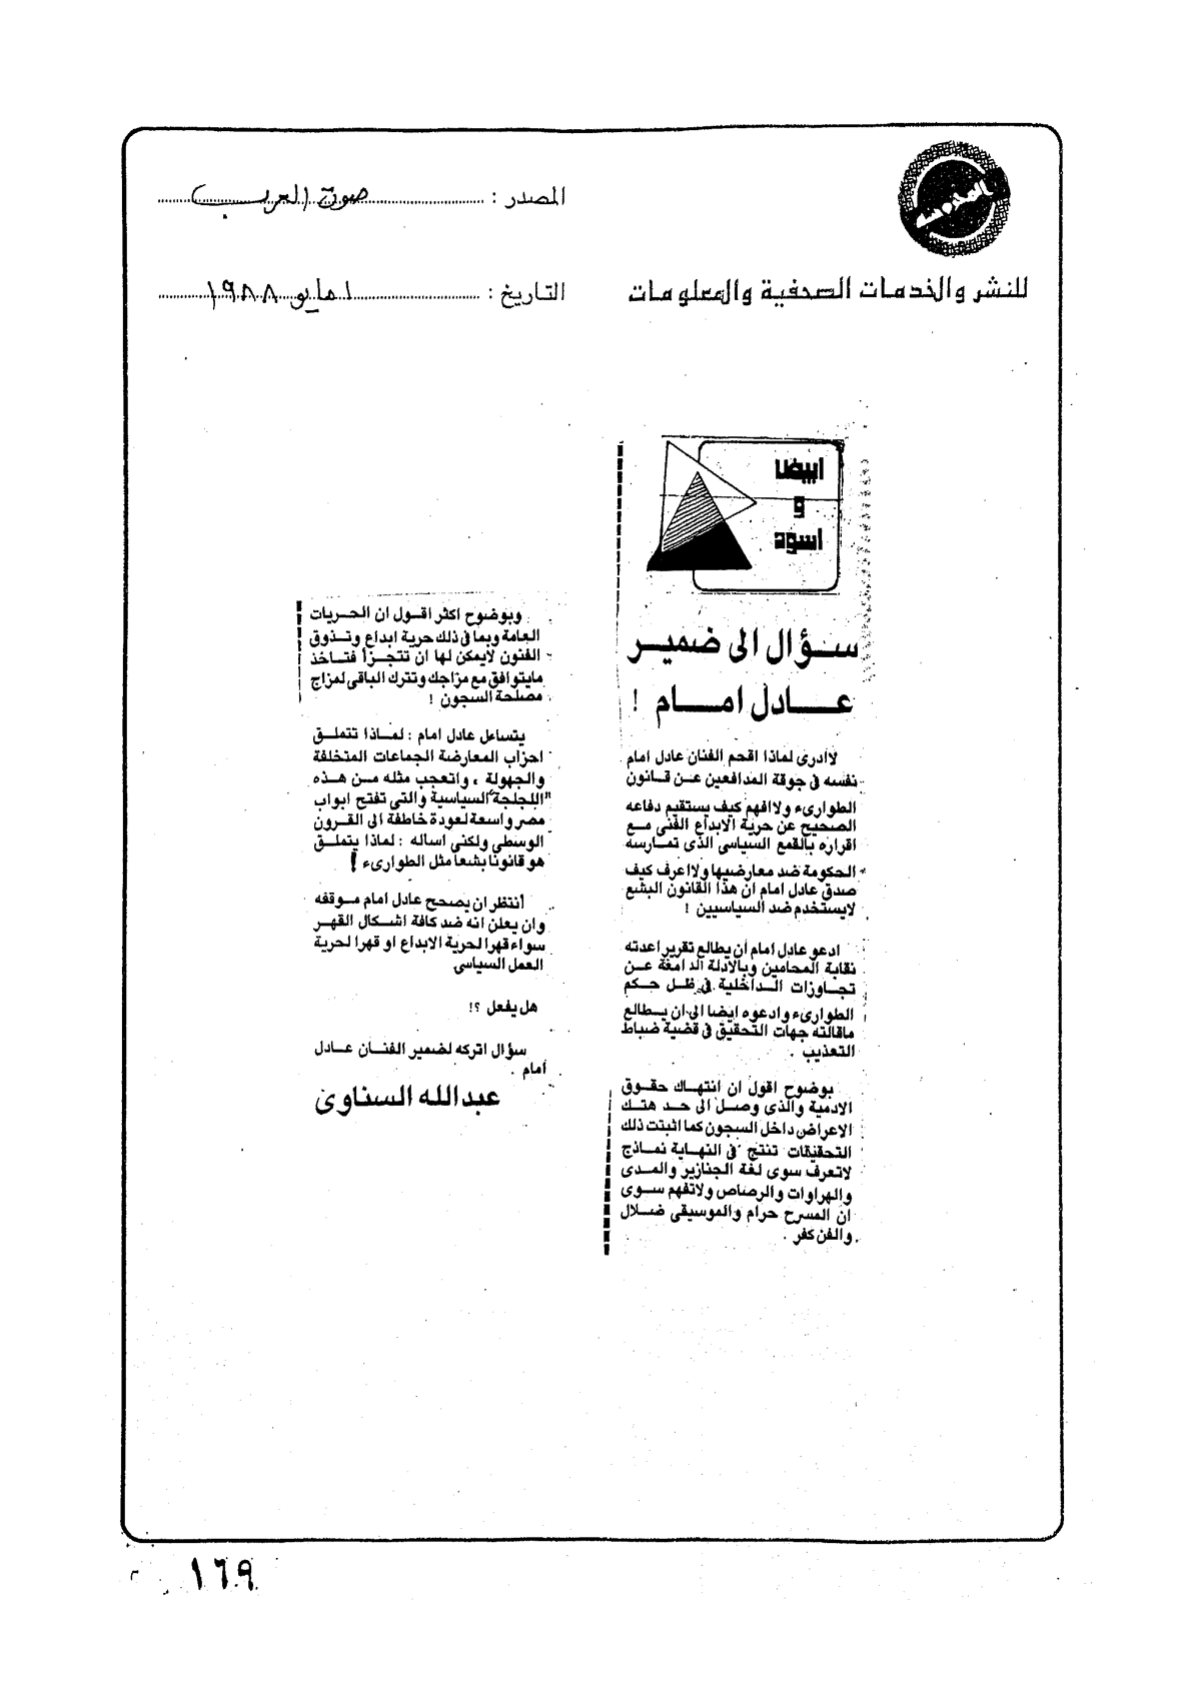 المحروسة
للنشر والخدمات الصحفية والمعلومات
المصدر : صوت العرب
التاريخ : ١ مايو ١٩٨٨
ابيض
و
اسود
سؤال الى ضمير
عادل امام !
لاادرى لماذا اقحم الفنان عادل امام
نفسه فى جوقة المدافعين عن قانون
الطوارىء ولاافهم كيف يستقيم دفاعه
الصحيح عن حرية الابداع الفنى مع
اقراره بالقمع السياسى الذى تمارسه
الحكومة ضد معارضيها ولااعرف كيف
صدق عادل امام ان هذا القانون البشع
لايستخدم ضد السياسيين !
ادعو عادل امام أن يطالع تقرير اعدته
نقابة المحامين وبالادلة الدامغة عن
تجاوزات الداخلية فى ظل حكم
الطوارىء وادعوه ايضا الى ان يطالع
ماقالته جهات التحقيق فى قضية ضباط
التعذيب .
بوضوح اقول ان انتهاك حقوق
الادمية والذى وصل الى حد هتك
الاعراض داخل السجون كما اثبتت ذلك
التحقيقات تنتج فى النهاية نماذج
لاتعرف سوى لغة الجنازير والمدى
والهراوات والرصاص ولاتفهم سوى
ان المسرح حرام والموسيقى ضلال
والفن كفر .
وبوضوح اكثر اقول ان الحريات
العامة وبما فى ذلك حرية ابداع وتذوق
الفنون لايمكن لها ان تتجزأ فتاخذ
مايتوافق مع مزاجك وتترك الباقى لمزاج
مصلحة السجون !
يتساءل عادل امام : لماذا تتملق
احزاب المعارضة الجماعات المتخلفة
والجهولة ، واتعجب مثله من هذه
"اللجلجة" السياسية والتى تفتح ابواب
مصر واسعة لعودة خاطفة الى القرون
الوسطى ولكنى اساله : لماذا يتملق
هو قانونا بشعا مثل الطوارىء !
أنتظر ان يصحح عادل امام موقفه
وان يعلن انه ضد كافة اشكال القهر
سواء قهرا لحرية الابداع او قهرا لحرية
العمل السياسى
هل يفعل ؟!
سؤال اتركه لضمير الفنان عادل
أمام .
عبدالله السناوى
١٦٩